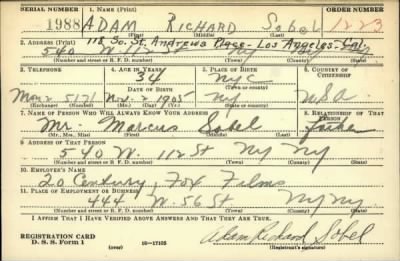 SERIAL NUMBER 1. NAME (Print) ORDER NUMBER
1988 ADAM RICHARD Sobel 1223
(First) (Middle) (Last)
118 So. St. Andrews Place - Los Angeles - Cal.
2. ADDRESS (Print)
540 W. 112 St NY NY
(Number and street or R. F. D. number) (Town) (County) (State)
3. TELEPHONE 4. AGE IN YEARS 5. PLACE OF BIRTH 6. COUNTRY OF CITIZENSHIP
34 NYC
DATE OF BIRTH (Town or county)
Mon 2 5171 Nov. 2 1905 NY USA
(Exchange) (Number) (Mo.) (Day) (Yr.) (State or country)
7. NAME OF PERSON WHO WILL ALWAYS KNOW YOUR ADDRESS 8. RELATIONSHIP OF THAT PERSON
Mr. Marcus Sobel Father
(Mr., Mrs., Miss) (First) (Middle) (Last)
9. ADDRESS OF THAT PERSON
540 W. 112 St NY NY
(Number and street or R. F. D. number) (Town) (County) (State)
10. EMPLOYER'S NAME
20 Century, Fox Films
11. PLACE OF EMPLOYMENT OR BUSINESS
444 W. 56 St NY NY
(Number and street or R. F. D. number) (Town) (County) (State)
I AFFIRM THAT I HAVE VERIFIED ABOVE ANSWERS AND THAT THEY ARE TRUE.
REGISTRATION CARD Adam Richard Sobel
D. S. S. Form 1 (over) 16-17105 (Registrant's signature)